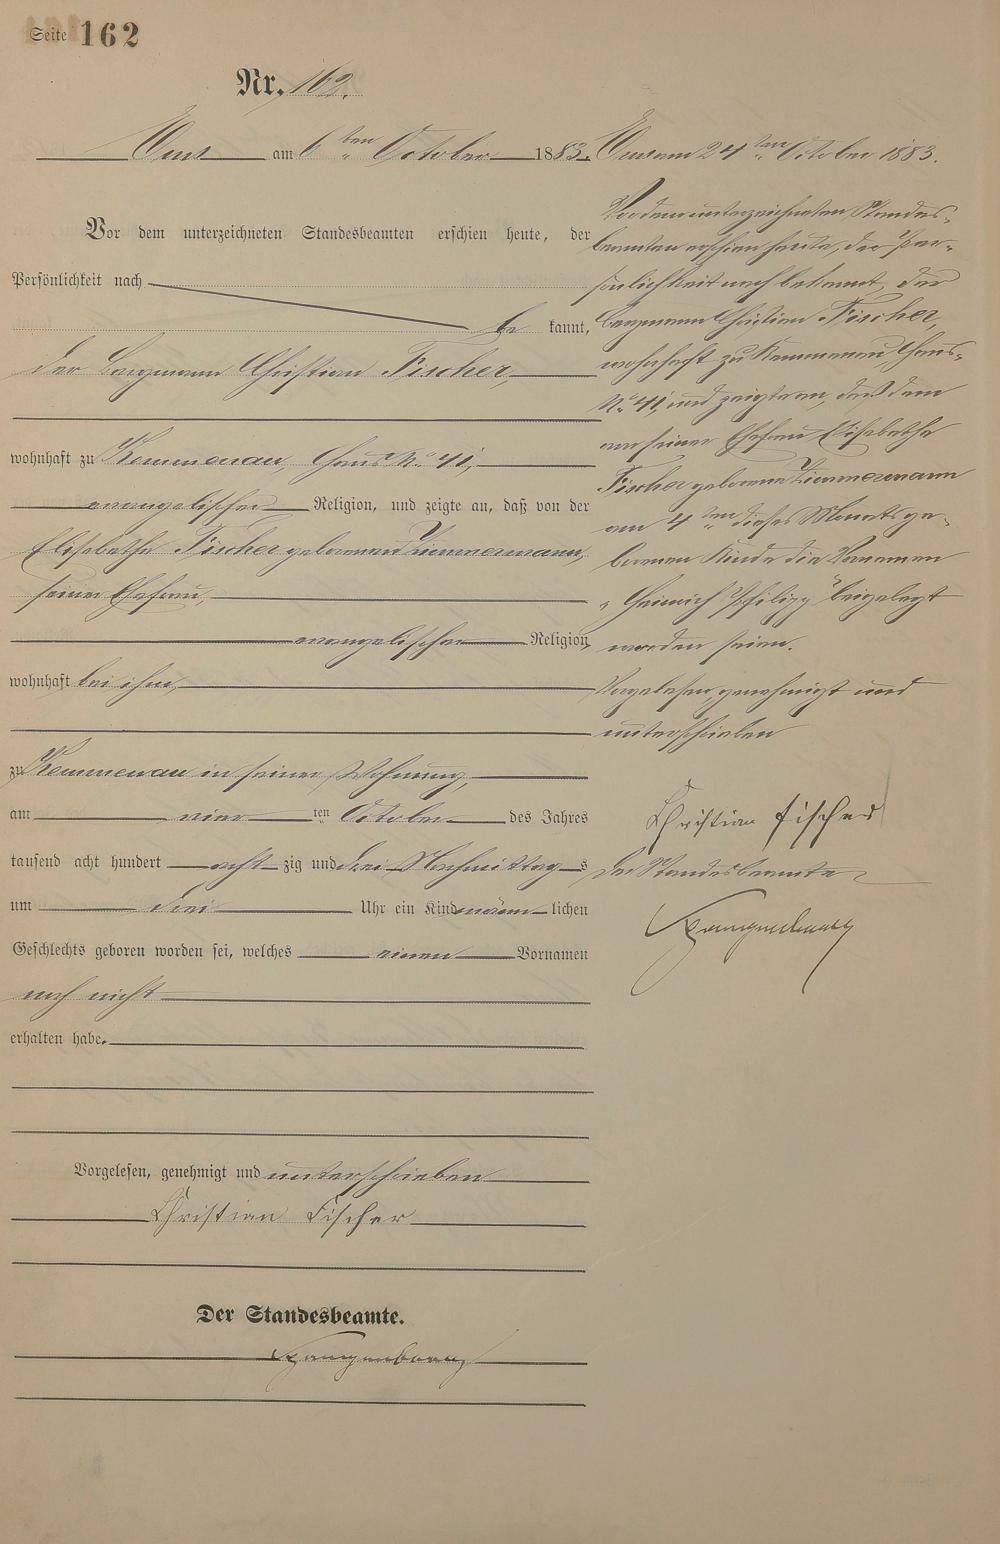 Seite 162
Nr. 162.
Ems am 6ten October 1883.
Vor dem unterzeichneten Standesbeamten erschien heute, der
Persönlichkeit nach
be kannt,
der Bergmann Christian Fischer,
wohnhaft zu Kemmenau, Haus No. 41,
evangelischer Religion, und zeigte an, daß von der
Elisabethe Fischer geborenen Zimmermann,
seiner Ehefrau,
evangelischer Religion,
wohnhaft bei ihm,
zu Kemmenau in seiner Wohnung,
am vier ten October des Jahres
tausend acht hundert acht zig und drei Nachmittag s
um drei Uhr ein Kind männ lichen
Geschlechts geboren worden sei, welches einen Vornamen
noch nicht
erhalten habe.
Vorgelesen, genehmigt und unterschrieben
Christian Fischer
Der Standesbeamte.
Ems am 24ten October 1883.
Vor dem unterzeichneten Standes-
beamten erschien heute, der Per-
sönlichkeit nach bekannt, der
Bergmann Christian Fischer,
wohnhaft zu Kemmenau, Haus-
No. 41, und zeigte an, daß dem
von seiner Ehefrau Elisabethe
Fischer geborenen Zimmermann
am 4ten dieses Monats ge-
borenen Kinde die Vornamen
"Heinrich Philipp" beigelegt
worden seien.
Vorgelesen, genehmigt und
unterschrieben
Christian Fischer
Der Standesbeamte